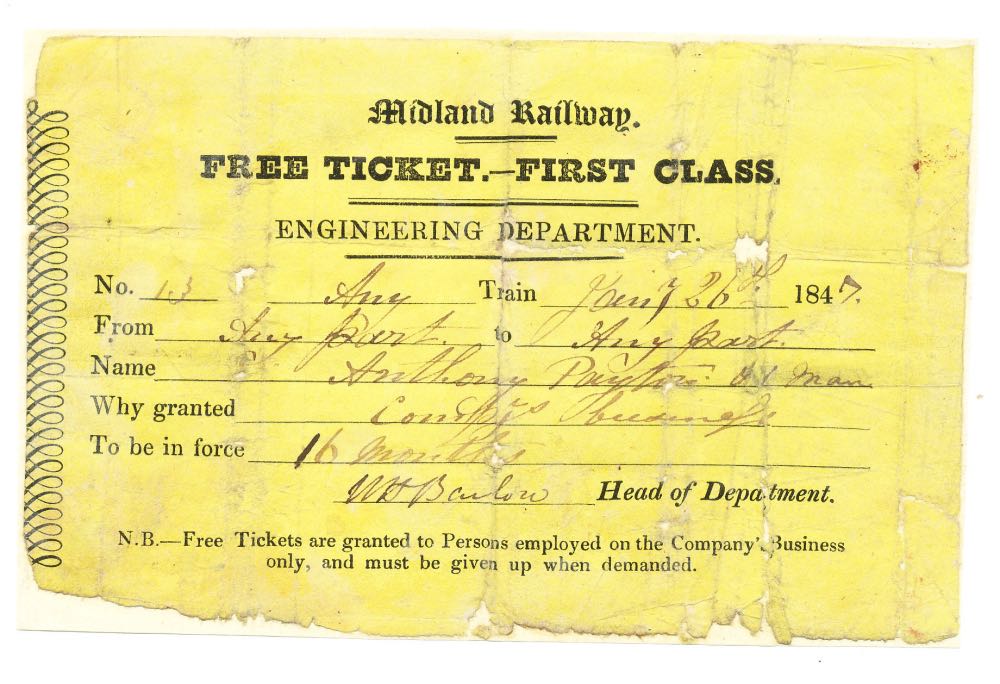 Midland Railway.
FREE TICKET.—FIRST CLASS.
ENGINEERING DEPARTMENT.
No. 13 Any Train Jany 26th 1847.
From Any part. to Any part.
Name Anthony Payton & 1 man
Why granted Compys business
To be in force 16 months
WH Barlow Head of Department.
N.B.—Free Tickets are granted to Persons employed on the Company's Business
only, and must be given up when demanded.